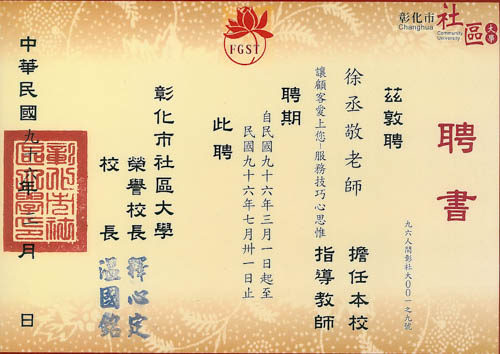 彰化市社區大學
Changhua Community University
FGST
聘書
九六人間彰社大001之九號
茲敦聘
徐丞敬老師 擔任本校
讓顧客愛上您-服務技巧心思惟 指導教師
聘期
自民國九十六年三月一日起至
民國九十六年七月卅一日止
此聘
彰化市社區大學
榮譽校長 釋心定
校長 溫國銘
中華民國九十六年 月 日